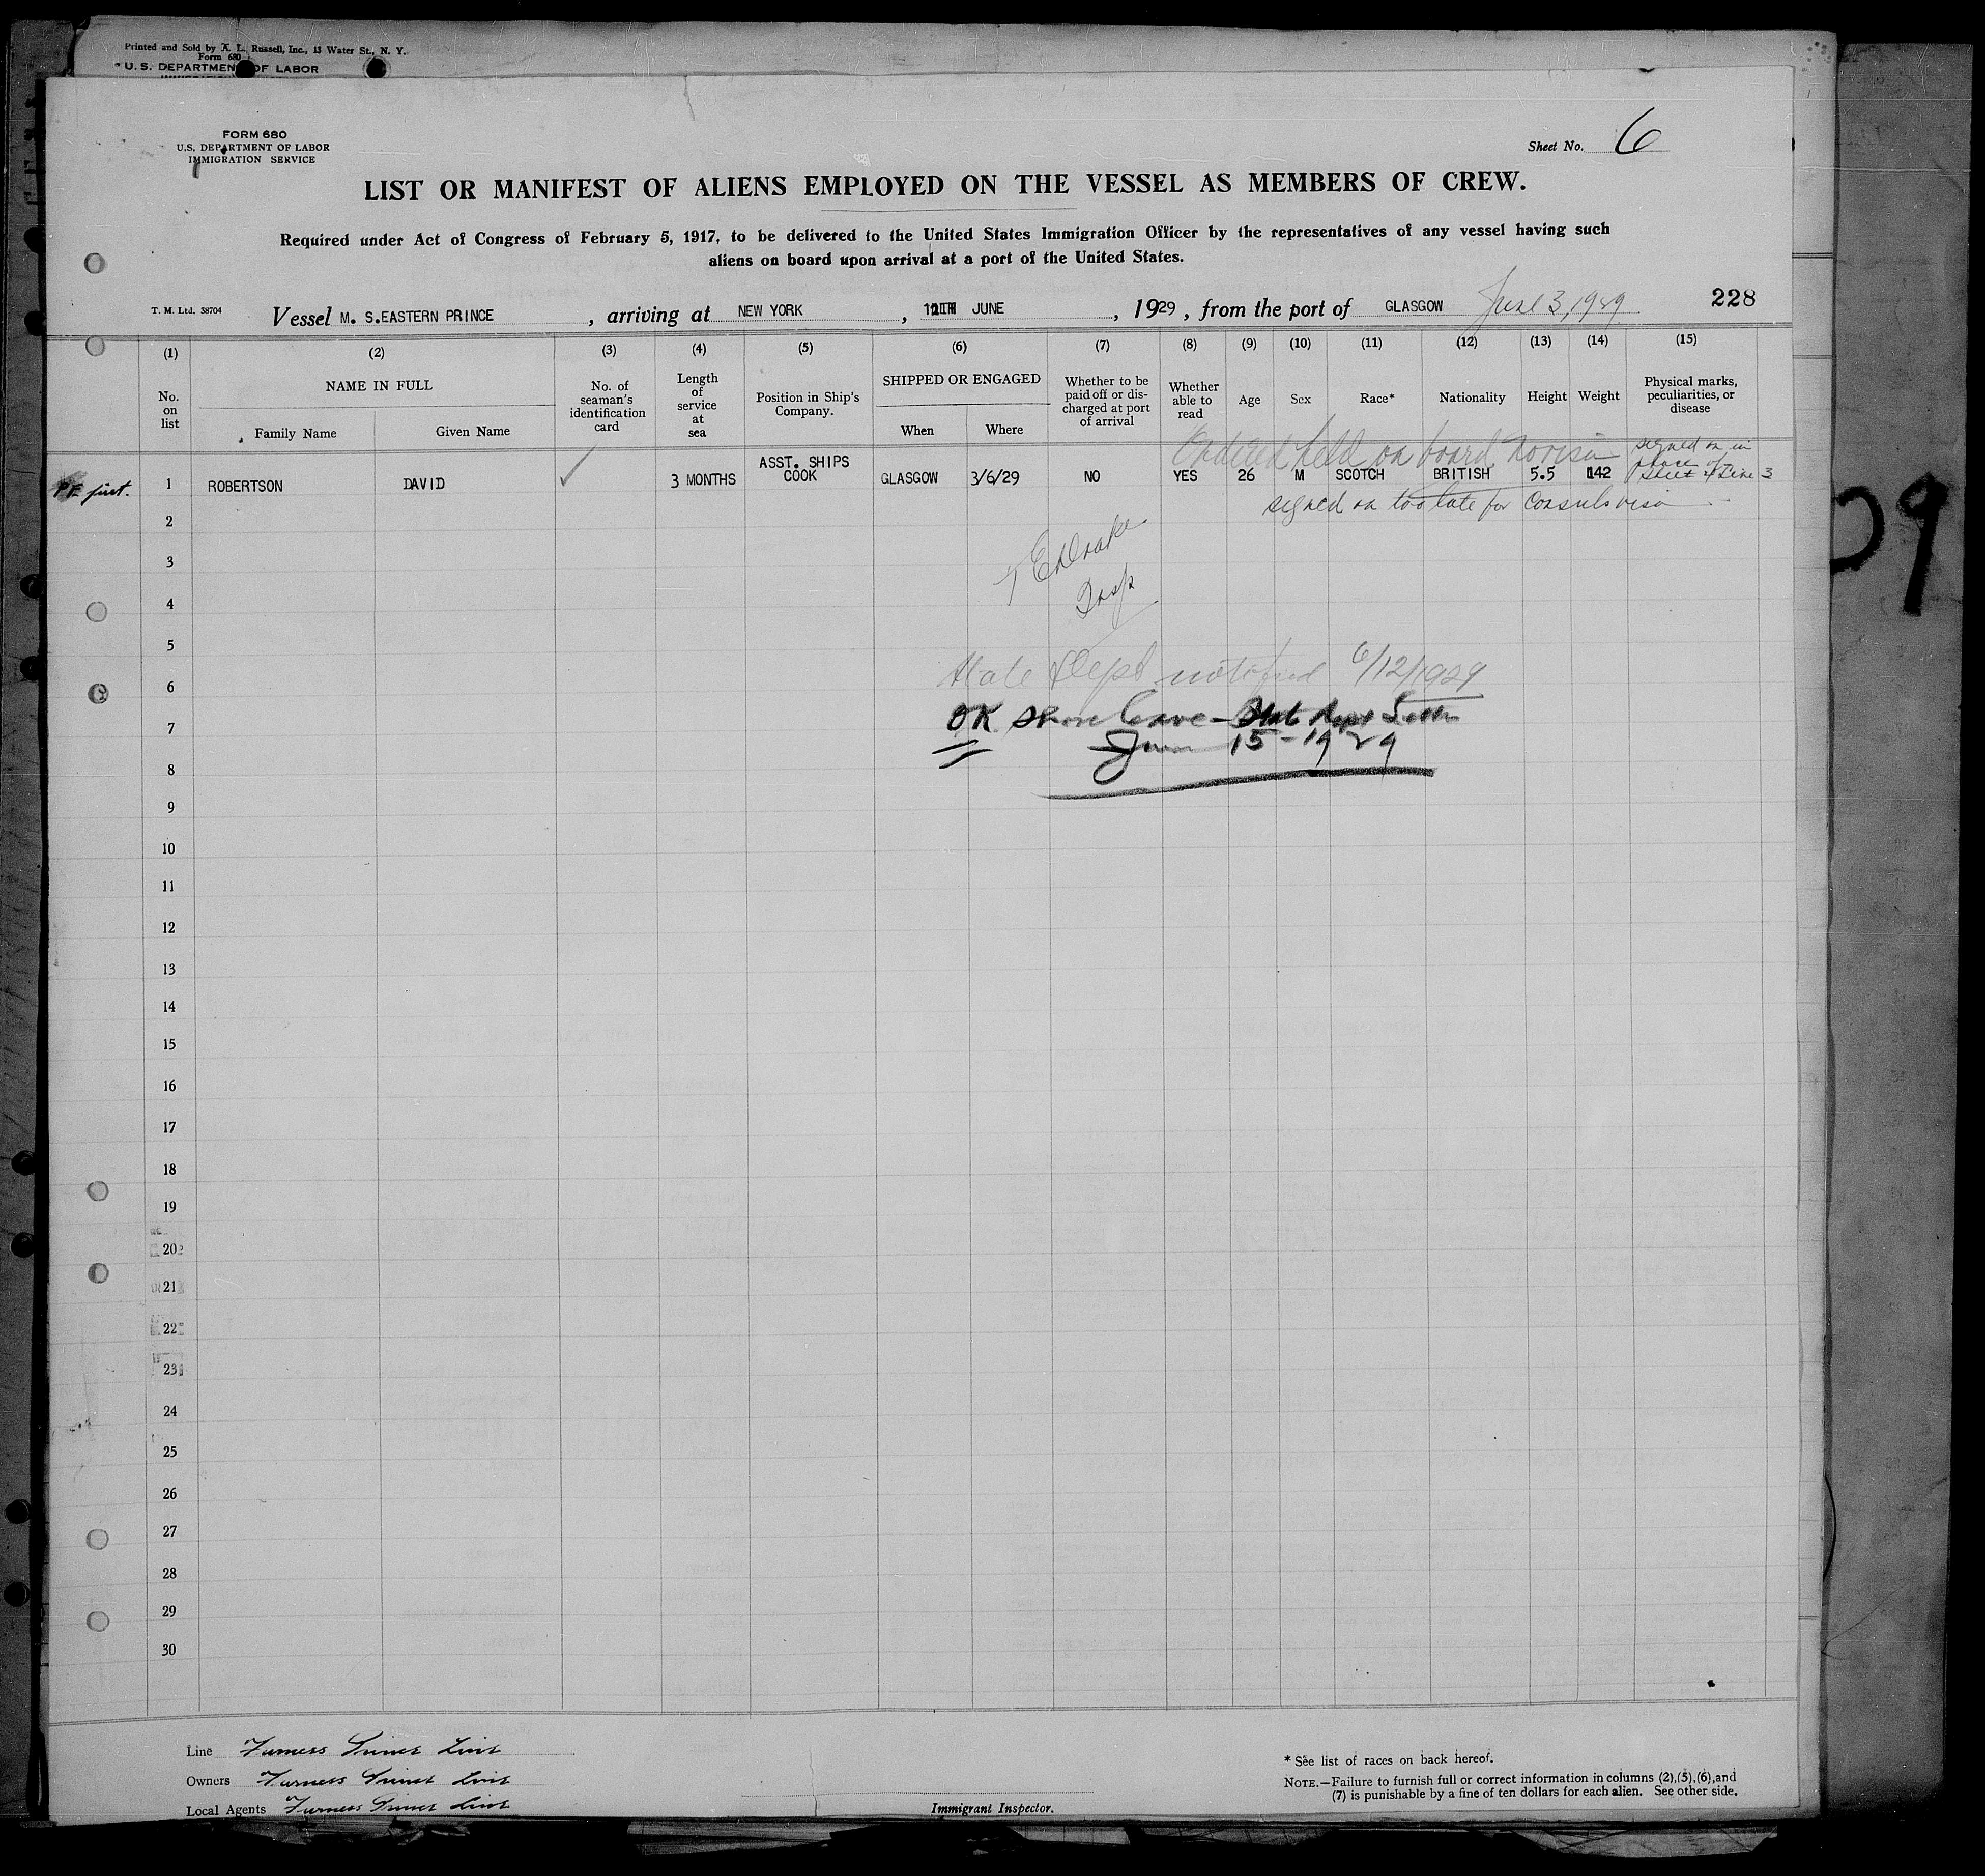 Printed and Sold by A. L. Russell, Inc., 13 Water St., N. Y.
Form 680
U. S. DEPARTMENT OF LABOR
FORM 680
U.S. DEPARTMENT OF LABOR
IMMIGRATION SERVICE
Sheet No. 6
LIST OR MANIFEST OF ALIENS EMPLOYED ON THE VESSEL AS MEMBERS OF CREW.
Required under Act of Congress of February 5, 1917, to be delivered to the United States Immigration Officer by the representatives of any vessel having such
aliens on board upon arrival at a port of the United States.
T. M. Ltd. 38704
Vessel M. S. EASTERN PRINCE, arriving at NEW YORK, JUNE, 1929, from the port of GLASGOW June 3, 1929
228
(1) (2) (3) (4) (5) (6) (7) (8) (9) (10) (11) (12) (13) (14) (15)
No. on list
NAME IN FULL
Family Name
Given Name
No. of seaman's identification card
Length of service at sea
Position in Ship's Company.
SHIPPED OR ENGAGED
When
Where
Whether to be paid off or discharged at port of arrival
Whether able to read
Age
Sex
Race*
Nationality
Height
Weight
Physical marks, peculiarities, or disease
Ordered held on board no visa
signed on in
place of
Sheet 4 Line 3
1 ROBERTSON DAVID ✓ 3 MONTHS ASST. SHIPS COOK GLASGOW 3/6/29 NO YES 26 M SCOTCH BRITISH 5.5 142
signed on too late for Consuls visa
2
3
4
5
State Dept notified 6/12/1929
6
OK Shore leave - State Dept
7
June 15-1929
8
9
10
11
12
13
14
15
16
17
18
19
20
21
22
23
24
25
26
27
28
29
30
09
Line Furness Prince Line
Owners Furness Prince Line
Local Agents Furness Prince Line
Immigrant Inspector.
* See list of races on back hereof.
NOTE.—Failure to furnish full or correct information in columns (2),(5),(6),and
(7) is punishable by a fine of ten dollars for each alien. See other side.